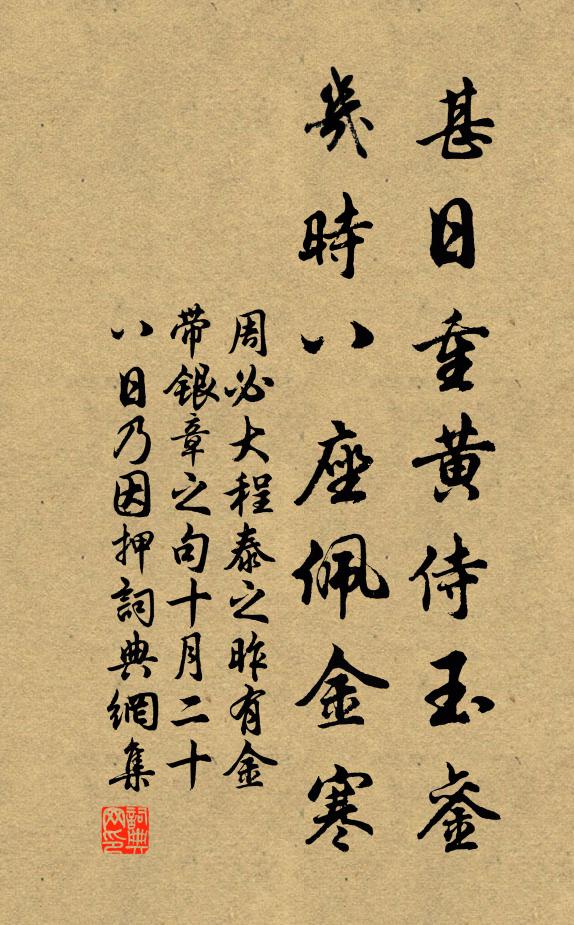 甚日重黄侍玉銮
幾時八座佩金寒
周必大程泰之昨有金
带銀章之句十月二十
八日乃因押詞典網集
詞典网印